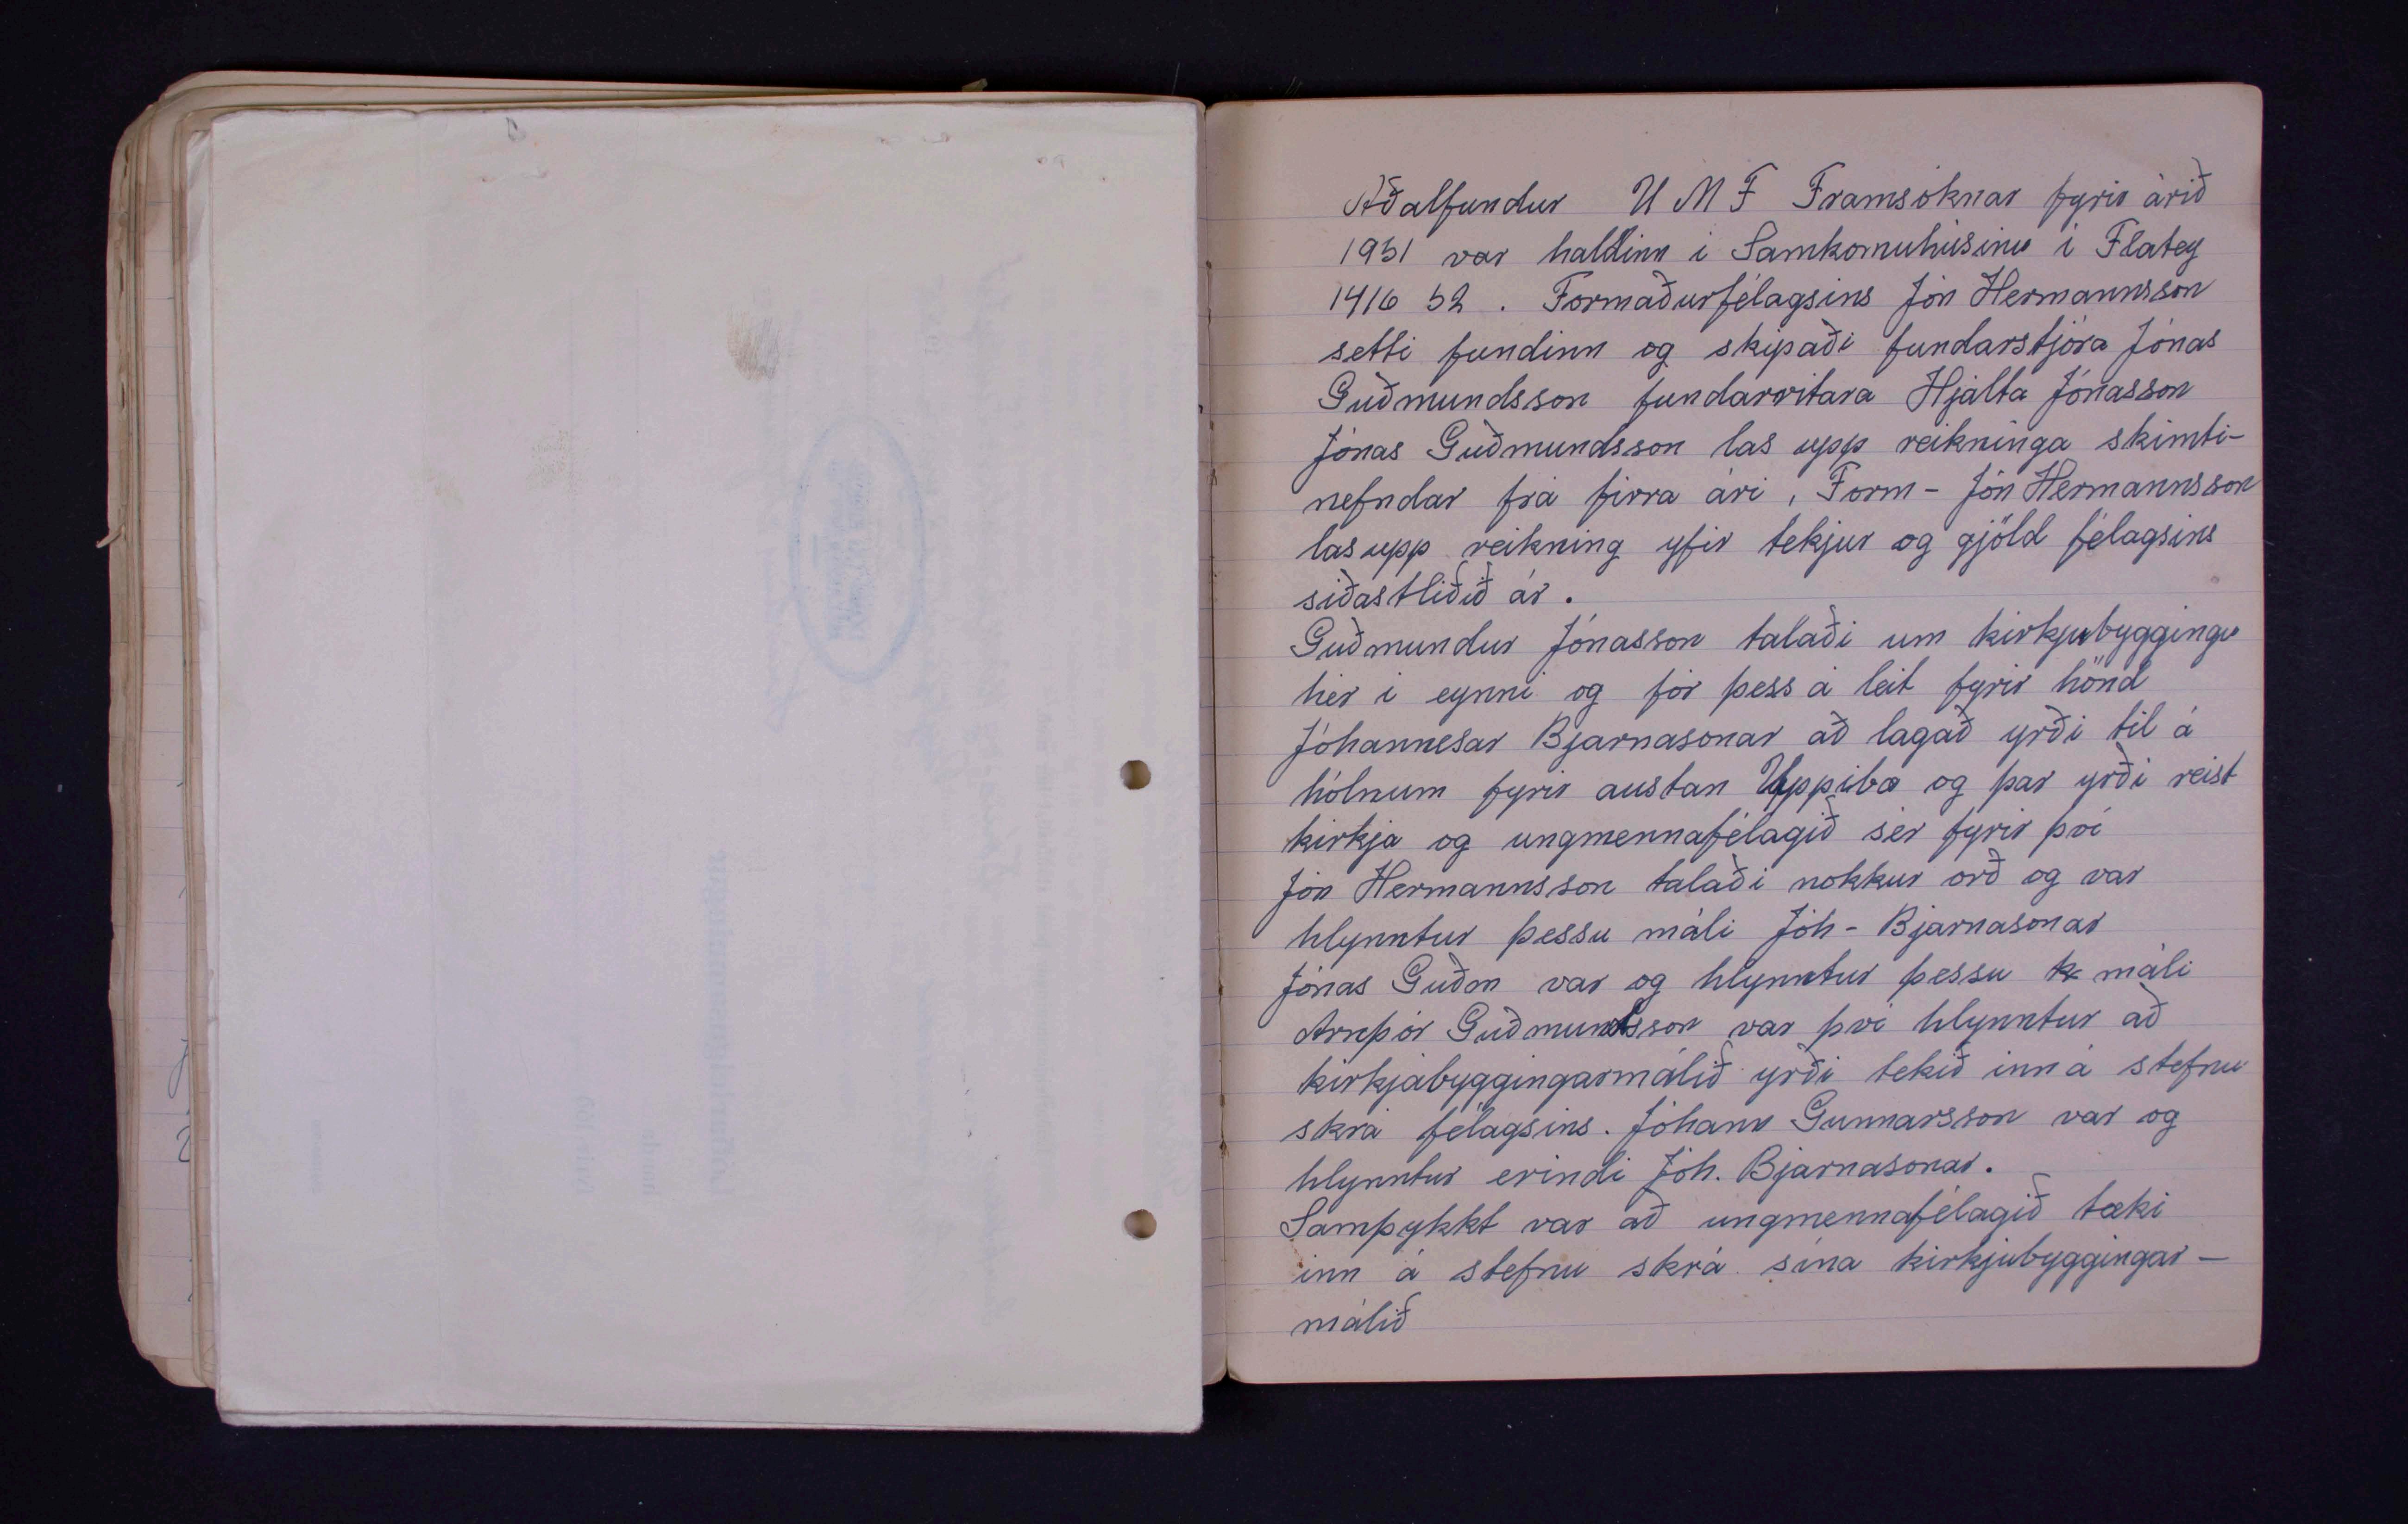 Aðalfundur U M F Framsóknar fyrir árið
1951 var haldinn í Samkomuhúsinu í Flatey
14/6 52. Formaðurfélagsins Jón Hermannsson
setti fundinn og skipaði fundarstjóra Jónas
Guðmundsson fundarritara Hjalta Jónasson
Jónas Guðmundsson las upp reikninga skimti-
nefndar frá firra ári, Form- Jón Hermannsson
las upp reikning yfir tekjur og gjöld félagsins
síðastliðið ár.
Guðmundur Jónasson talaði um kirkjubyggingu
hér í eynni og fór þess á leit fyrir hönd
Jóhannesar Bjarnasonar að lagað yrði til á
hólnum fyrir austan Uppibæ og þar yrði reist
kirkja og ungmennafélagið sér fyrir því
Jón Hermannsson talaði nokkur orð og var
hlynntur þessu máli Jóh- Bjarnasonar
Jónas Guðm var og hlynntur þessu máli
Arnþór Guðmundsson var því hlynntur að
kirkjabyggingarmálið yrði tekið inn á stefnu
skrá félagsins. Jóhann Gunnarsson var og
hlynntur erindi Jóh. Bjarnasonar.
Samþykkt var að ungmennafélagið tæki
inn á stefnu skrá sína kirkjubyggingar-
málið